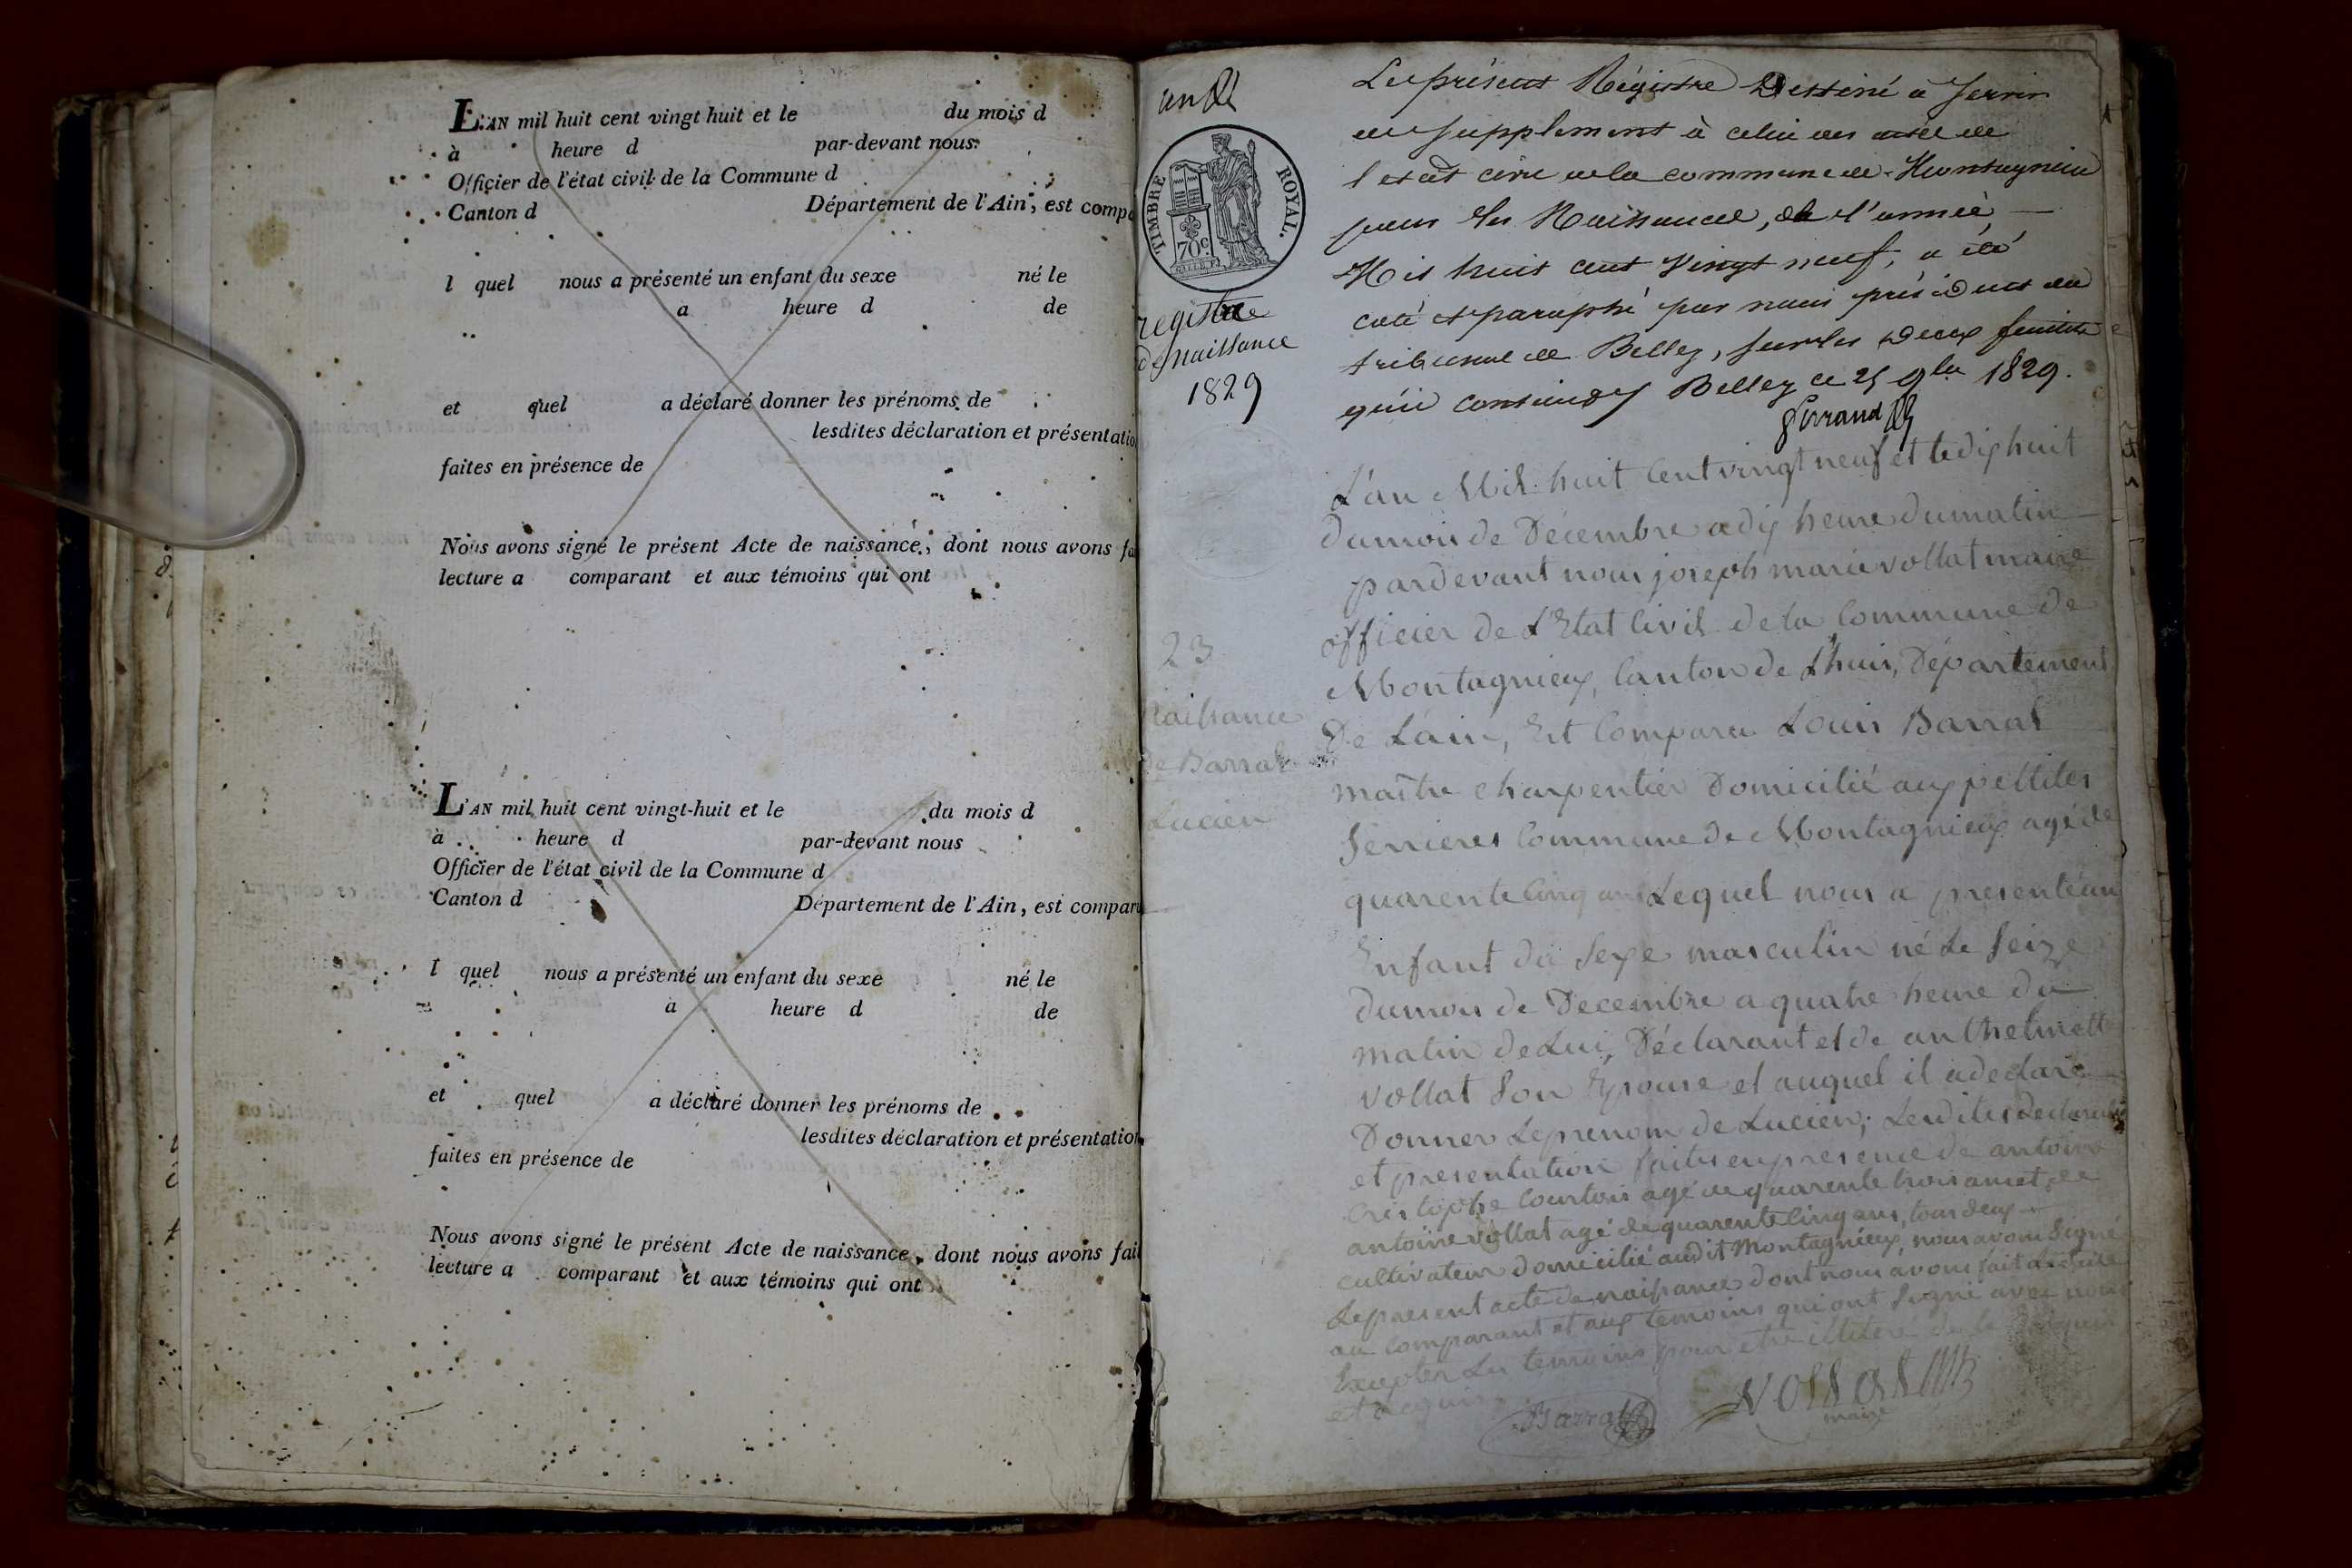 L'AN mil huit cent vingt huit et le du mois d
à heure d par-devant nous
Officier de l'état civil de la Commune d
Canton d Département de l'Ain, est comp
l quel nous a présenté un enfant du sexe né le
a heure d de
et quel a déclaré donner les prénoms de
lesdites déclaration et présentatio
faites en présence de
Nous avons signé le présent Acte de naissance, dont nous avons fa
lecture a comparant et aux témoins qui ont
L'AN mil huit cent vingt-huit et le du mois d
à heure d par-devant nous
Officier de l'état civil de la Commune d
Canton d Département de l'Ain, est compar
l quel nous a présenté un enfant du sexe né le
a heure d de
et quel a déclaré donner les prénoms de
lesdites déclaration et présentation
faites en présence de
Nous avons signé le présent Acte de naissance, dont nous avons fait
lecture a comparant et aux témoins qui ont
un
TIMBRE ROYAL.
70c
registre
de naissance
1829
Le présent Régistre Destiné à servir
de supplement à celui des actes de
l'etat civil de la commune de Montagnieu
pour les Naissances, de l'année
Mil huit cent vingt neuf, a été
coté et paraphé par nous président du
tribunal de Belley, sur les deux feuillets
qu'il contient Belley le 25 9bre 1829.
23
Naissance
de Barral
Lucien
L'an Mil huit Cent vingt neuf et le dix huit
du mois de Décembre a dix heure du matin
pardevant nous joseph marie vollat maire
officier de L'Etat Civil de la Commune de
Montagnieux, Canton de Lhuis, Département
De L'ain, Est Comparu Louis Barral
maître charpentier Domicilié aux pettites
Serrieres Commune de Montagnieux agé de
quarente Cinq ans Lequel nous a presenté un
Enfant du Sexe masculin né Le Seize
du mois de Decembre a quatre heure du
matin de Lui, Déclarant et de anthelmette
vollat Son Epouse et auquel il a declaré
Donner Le prenom de Lucien; Lesdites declaration
et presentation faites en presence de antoine
Cristophe Courtois agé de quarente trois ans et de
antoine vollat agé de quarente Cinq ans, tous deux
cultivateur domicilié audit Montagnieux, nous avons Signé
Le present acte de naissance dont nous avons fait Lecture
au Comparant et aux temoins qui ont Signé avec nous
Excepter Les temoins pour etre illiteré de ce enquis
et requis
Barral
Vollat
maire